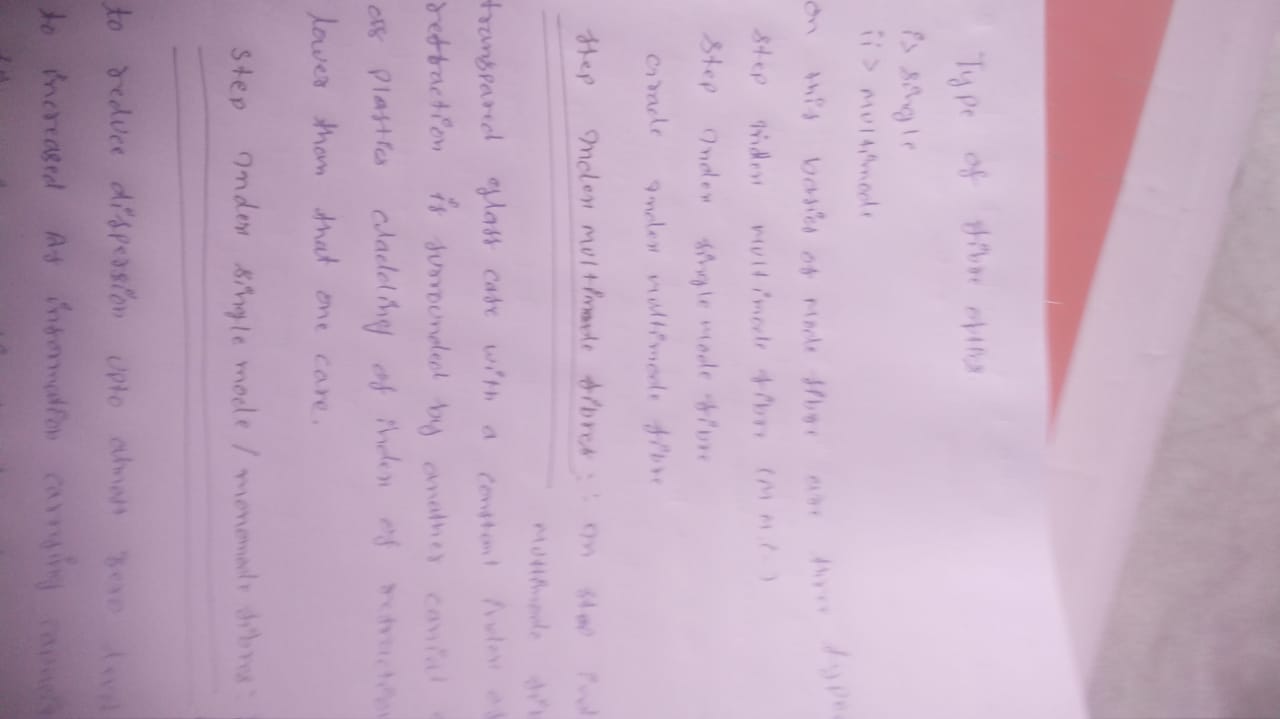 Type of fibre optics
i> single
ii> multimode
on this basis of mode fibre are three type
step index multimode fibre (MM
step index single mode fibre
Grade index multimode fibre
step index multimode fibres: : In step ind
multimode fib
transpared glass care with a constant index of
refraction is surrounded by another conical
or plastics cladding of index of refraction
lower than that one care.
Step index single mode / monomode fibres:
to reduce dispersion upto almost zero level
to increased As information carrying